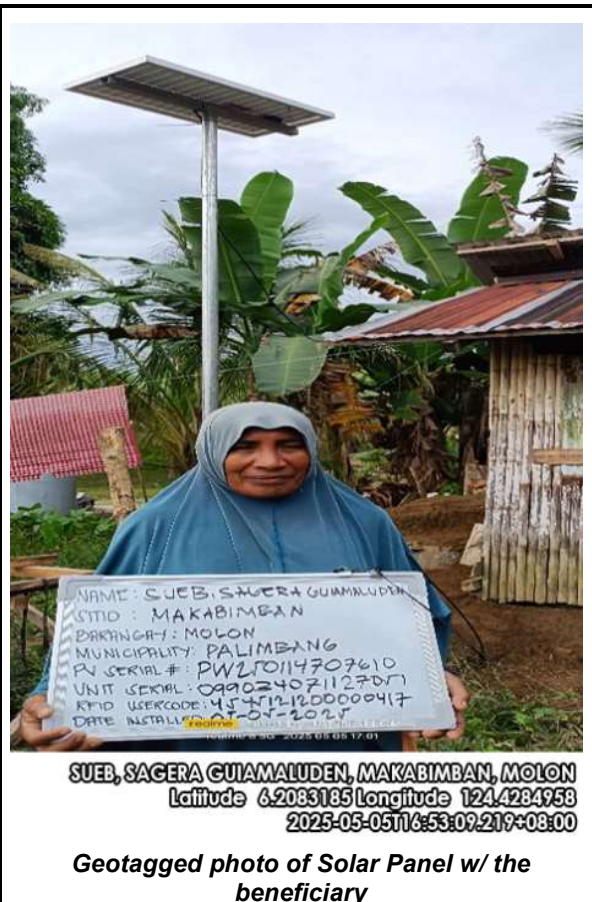 NAME: SUEB, SAGERA GUIAMALUDEN
SITIO : MAKABIMBAN
BARANGAY: MOLON
MUNICIPALITY: PALIMBANG
PV SERIAL #: PW250114707610
UNIT SERIAL: 099024071127051
RFID USERCODE: 4545121200000417
DATE INSTALLED 05-05-2025
realme
2025 05 05 17:01
SUEB, SAGERA GUIAMALUDEN, MAKABIMBAN, MOLON
Latitude 6.2083185 Longitude 124.4284958
2025-05-05T16:53:09.219+08:00
Geotagged photo of Solar Panel w/ the
beneficiary